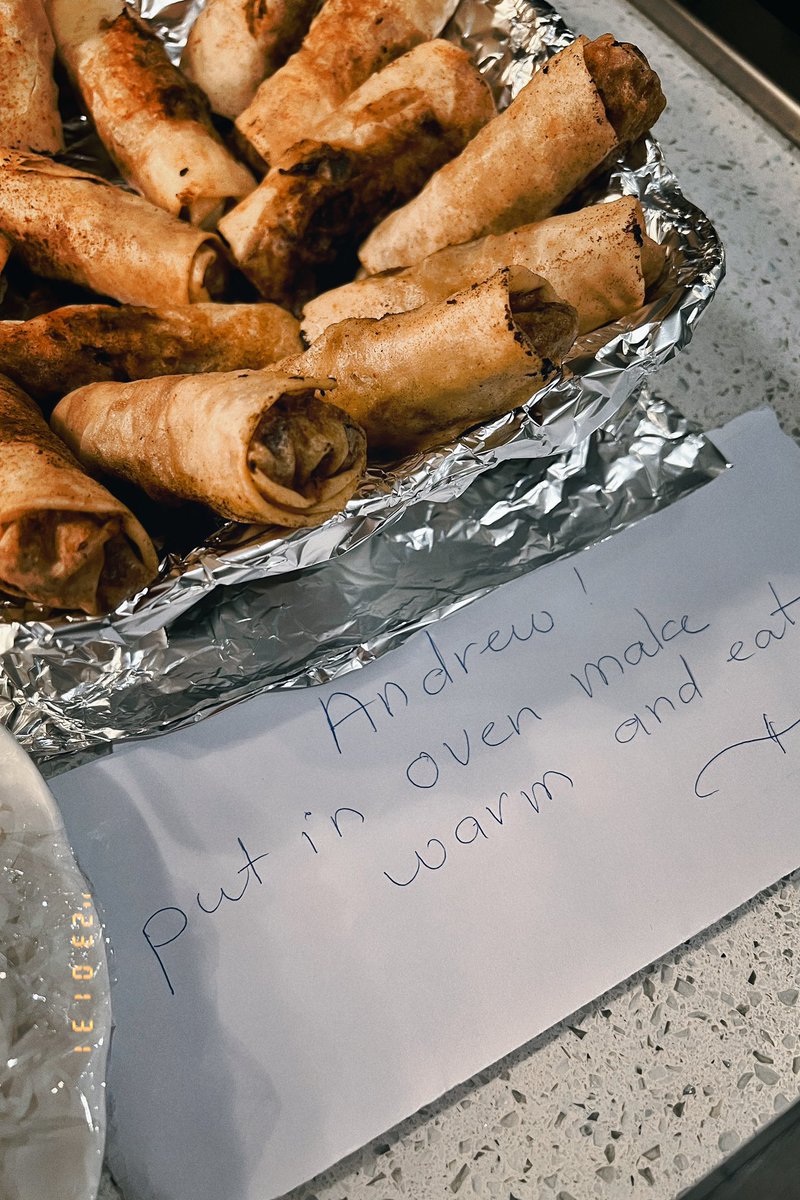 Andrew!
put in oven make
warm and eat
'23 01 31